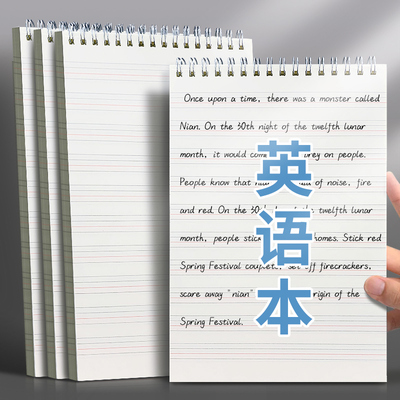 Once upon a time, there was a monster called
Nian. On the 30th night of the twelfth lunar
month, it would com prey on people.
People know that of noise, fire
and red. On the 30 of the twelfth lunar
month, people stick homes. Stick red
Spring Festival couplets, set off firecrackers,
scare away "nian" origin of the
Spring Festival.
英
语
本